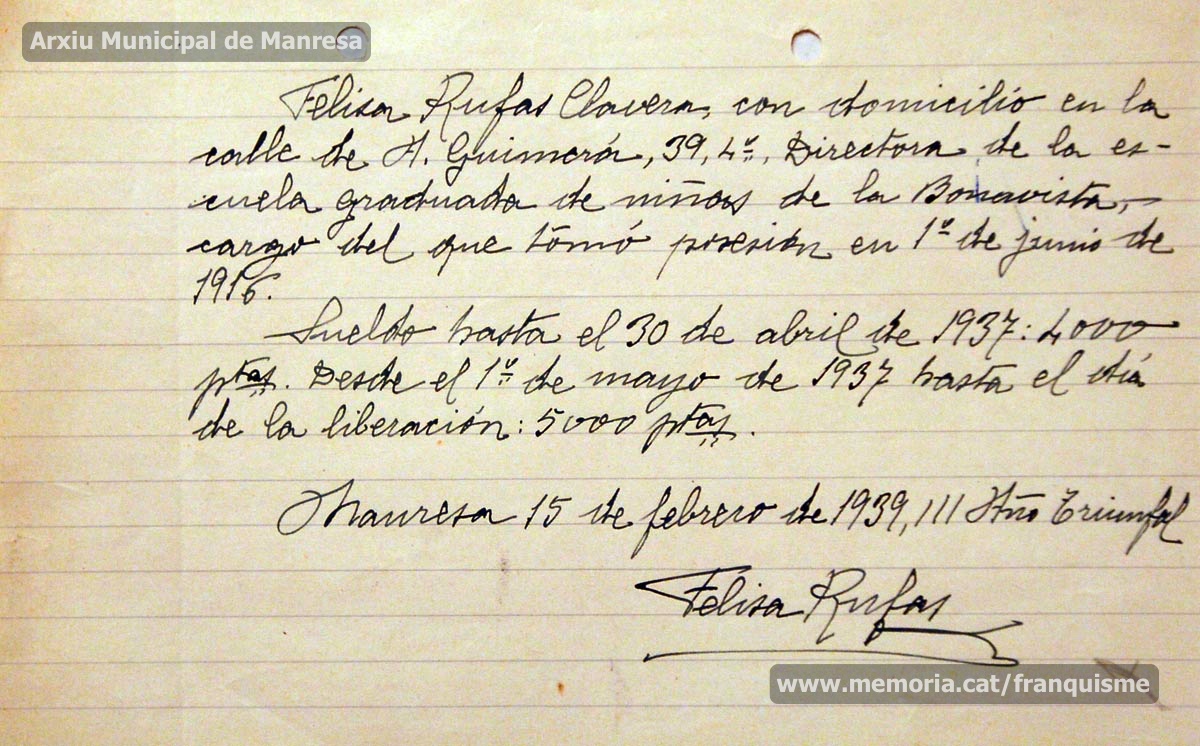 Arxiu Municipal de Manresa
Felisa Rufas Clavera, con domicilio en la
calle de A. Guimerá, 39, 4º, Directora de la es-
cuela graduada de niñas de la Bonavista,-
cargo del que tomó posesión en 1º de junio de
1916.
Sueldo hasta el 30 de abril de 1937: 4000
ptas. Desde el 1º de mayo de 1937 hasta el día
de la liberación: 5000 ptas.
Manresa 15 de febrero de 1939, III Año Triunfal
Felisa Rufas
www.memoria.cat/franquisme